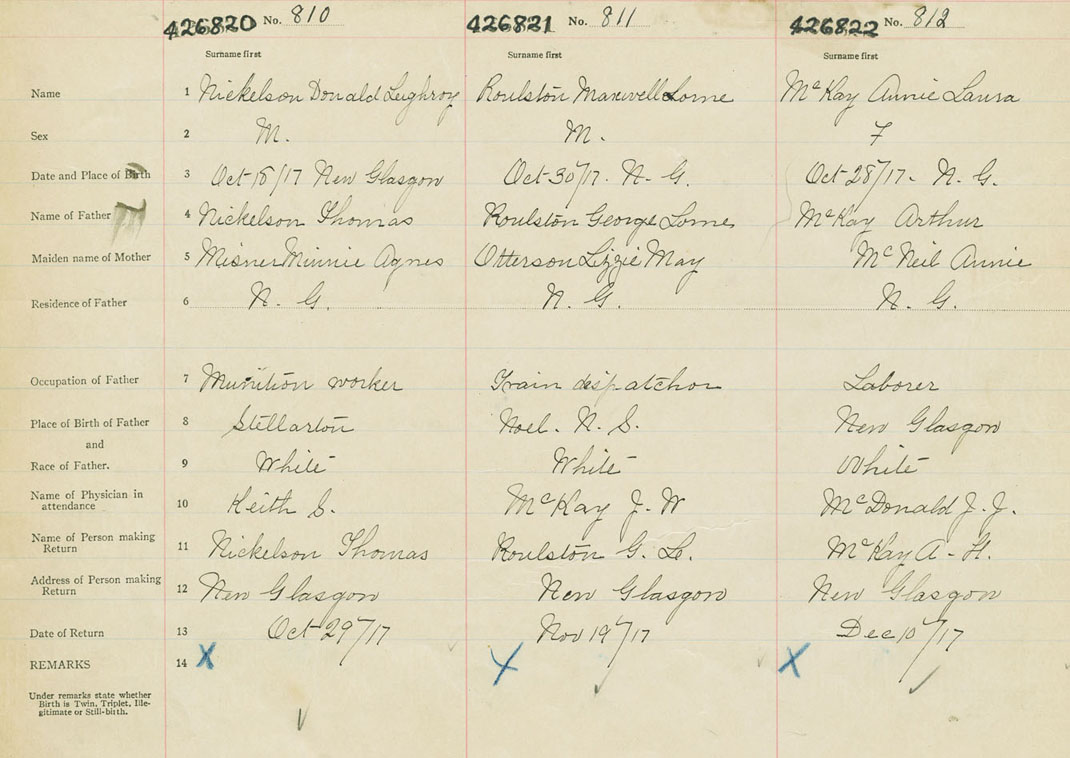 426820 No. 810 426821 No. 811 426822 No. 812
Surname first Surname first Surname first
Name 1 Nickelson Donald Leighroy Roulston Maxwell Lorne McKay Annie Laura
Sex 2 M. M. F
Date and Place of Birth 3 Oct 18/17 New Glasgow Oct 30/17. N. G. Oct 28/17. N. G.
Name of Father 4 Nickelson Thomas Roulston George Lorne McKay Arthur
Maiden name of Mother 5 Misner Minnie Agnes Otterson Lizzie May McNeil Annie
Residence of Father 6 N. G. N. G. N. G.
Occupation of Father 7 Munition worker Train despatchor Laborer
Place of Birth of Father 8 Stellarton Noel. N. S. New Glasgow
and
Race of Father. 9 White White White
Name of Physician in
attendance 10 Keith S. McKay J. W McDonald J. J.
Name of Person making
Return 11 Nickelson Thomas Roulston G. L. McKay A - H.
Address of Person making
Return 12 New Glasgow New Glasgow New Glasgow
Date of Return 13 Oct 29/17 Nov 19/17 Dec 10/17
REMARKS 14 X X X
Under remarks state whether
Birth is Twin, Triplet, Ille-
gitimate or Still-birth.